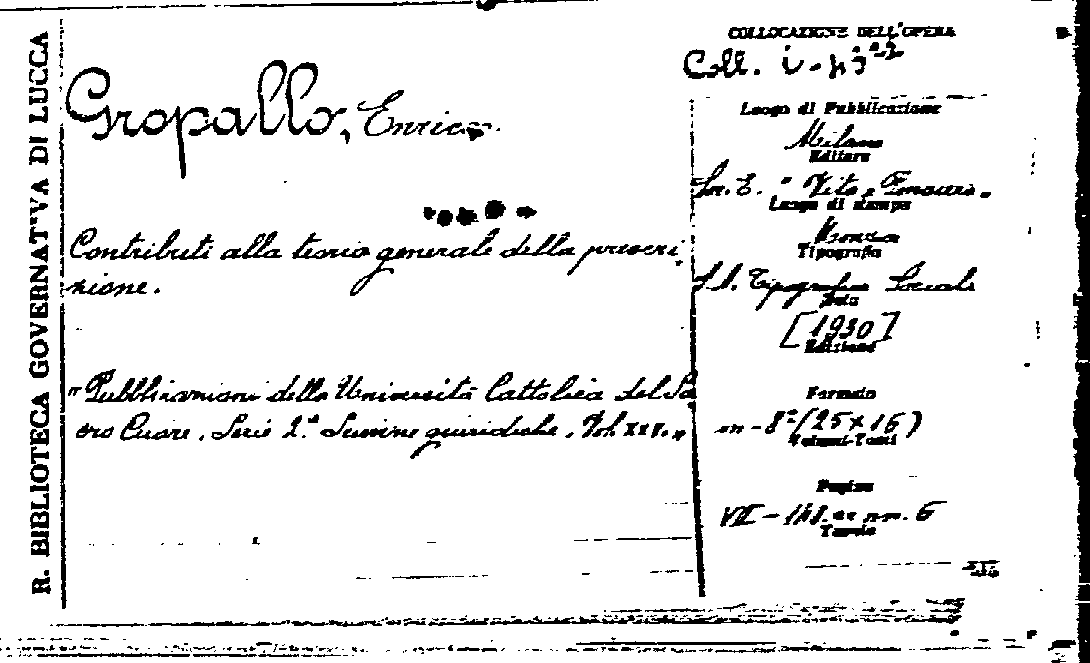 R. BIBLIOTECA GOVERNATIVA DI LUCCA
Gropallo, Enrico.
Contributi alla teoria generale della prescri
zione.
"Pubblicazioni della Università Cattolica del Sa
cro Cuore. Serie 2.ª Scienze giuridiche. Vol. XXV."
COLLOCAZIONE DELL'OPERA
Coll.
Luogo di Pubblicazione
Milano
Editore
Soc. E. "Vita e Pensiero"
Luogo di stampa
Monza
Tipografia
S. A. Tipografia Sociale
Data
[1930]
Edizione
Formato
in-8°(25x16)
Volumi-Tomi
Pagine
VII - nn. 6
Tavole